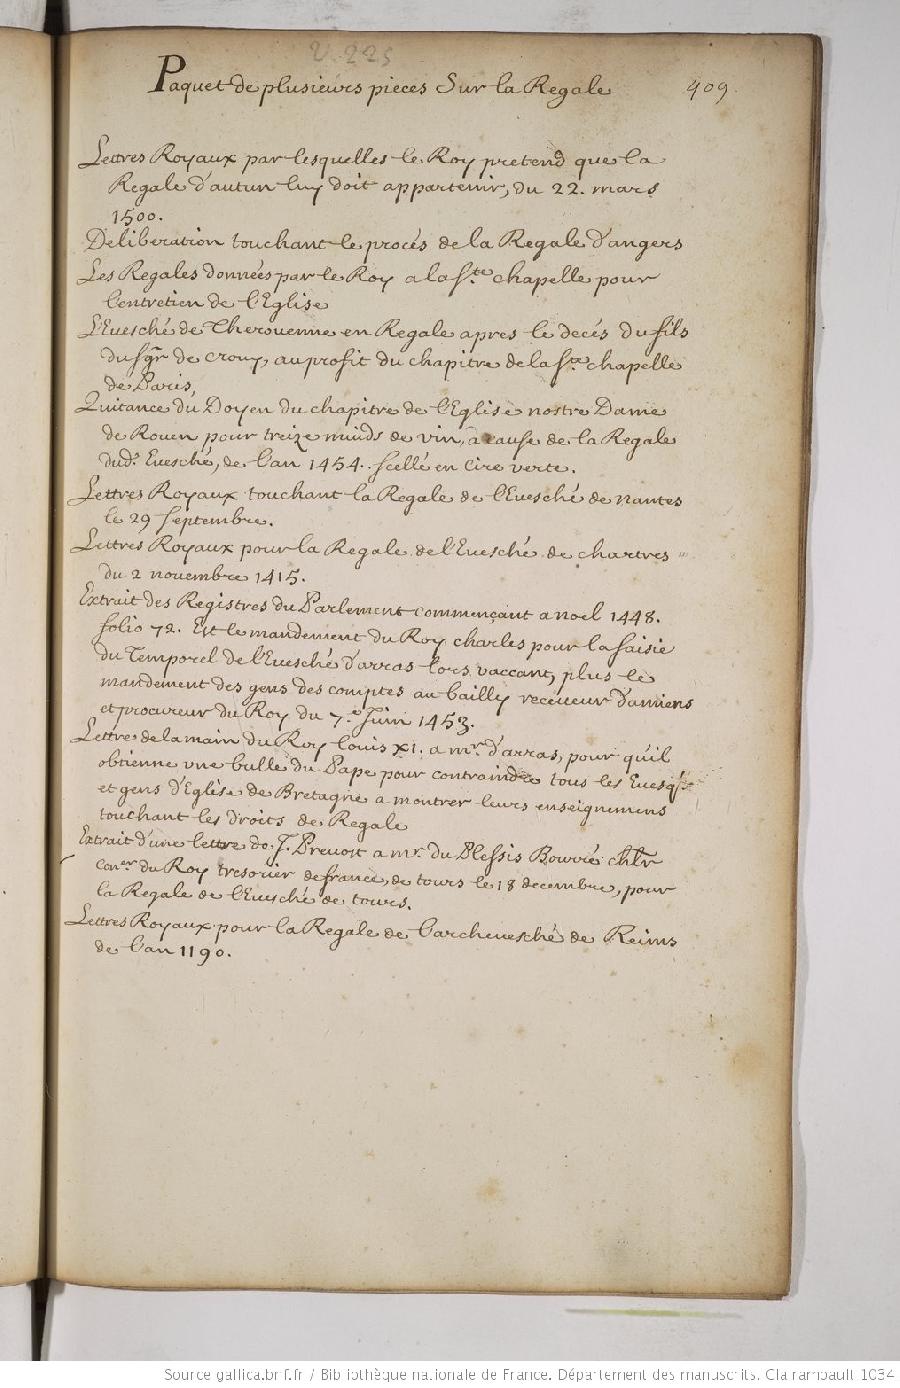 V. 225
Paquet de plusieurs pieces Sur la Regale 409.
Lettres Royaux par lesquelles le Roy pretend que la
Regale d'autun luy doit appartenir, du 22. mars
1500.
Deliberation touchant le procés de la Regale d'angers
Les Regales données par le Roy a la Ste. chapelle pour
l'entretien de l'Eglise
L'Euesché de Therouenne en Regale apres le decés du fils
du sgr. de Crouy au profit du chapitre de la Ste. chapelle
de Paris
Quitance du Doyen du chapitre de l'Eglise nostre Dame
de Rouen pour treize muids de vin, a cause de la Regale
dud. Euesché, de l'an 1454. scellé en cire verte.
Lettres Royaux touchant la Regale de l'Euesché de nantes
le 29 septembre.
Lettres Royaux pour la Regale de l'Euesché de chartres =
du 2 novembre 1415.
Extrait des Registres du Parlement commençant a noel 1448.
folio 72. Est le mandement du Roy charles pour la saisie
du Temporel de l'Euesché d'arras lors vaccant, plus le
mandement des gens des comptes au bailly receueur d'amiens
et procureur du Roy du 7.e Juin 1453.
Lettre de la main du Roy louis XI. a mr. d'arras, pour qu'il
obtienne vne bulle du Pape pour contraindre tous les Euesq.
et gens d'Eglise de Bretagne a montrer leurs enseignemens
touchant les droits de Regale
Extrait d'une lettre de J. Prevost a mr. du Plessis Bourré chlr
con.er du Roy tresorier de france, de tours le 18 decembre, pour
la Regale de l'Euesché de tours.
Lettres Royaux pour la Regale de l'archeuesché de Reims
de l'an 1190.
Source gallica.bnf.fr / Bibliothèque nationale de France. Département des manuscrits. Clairambault 1034